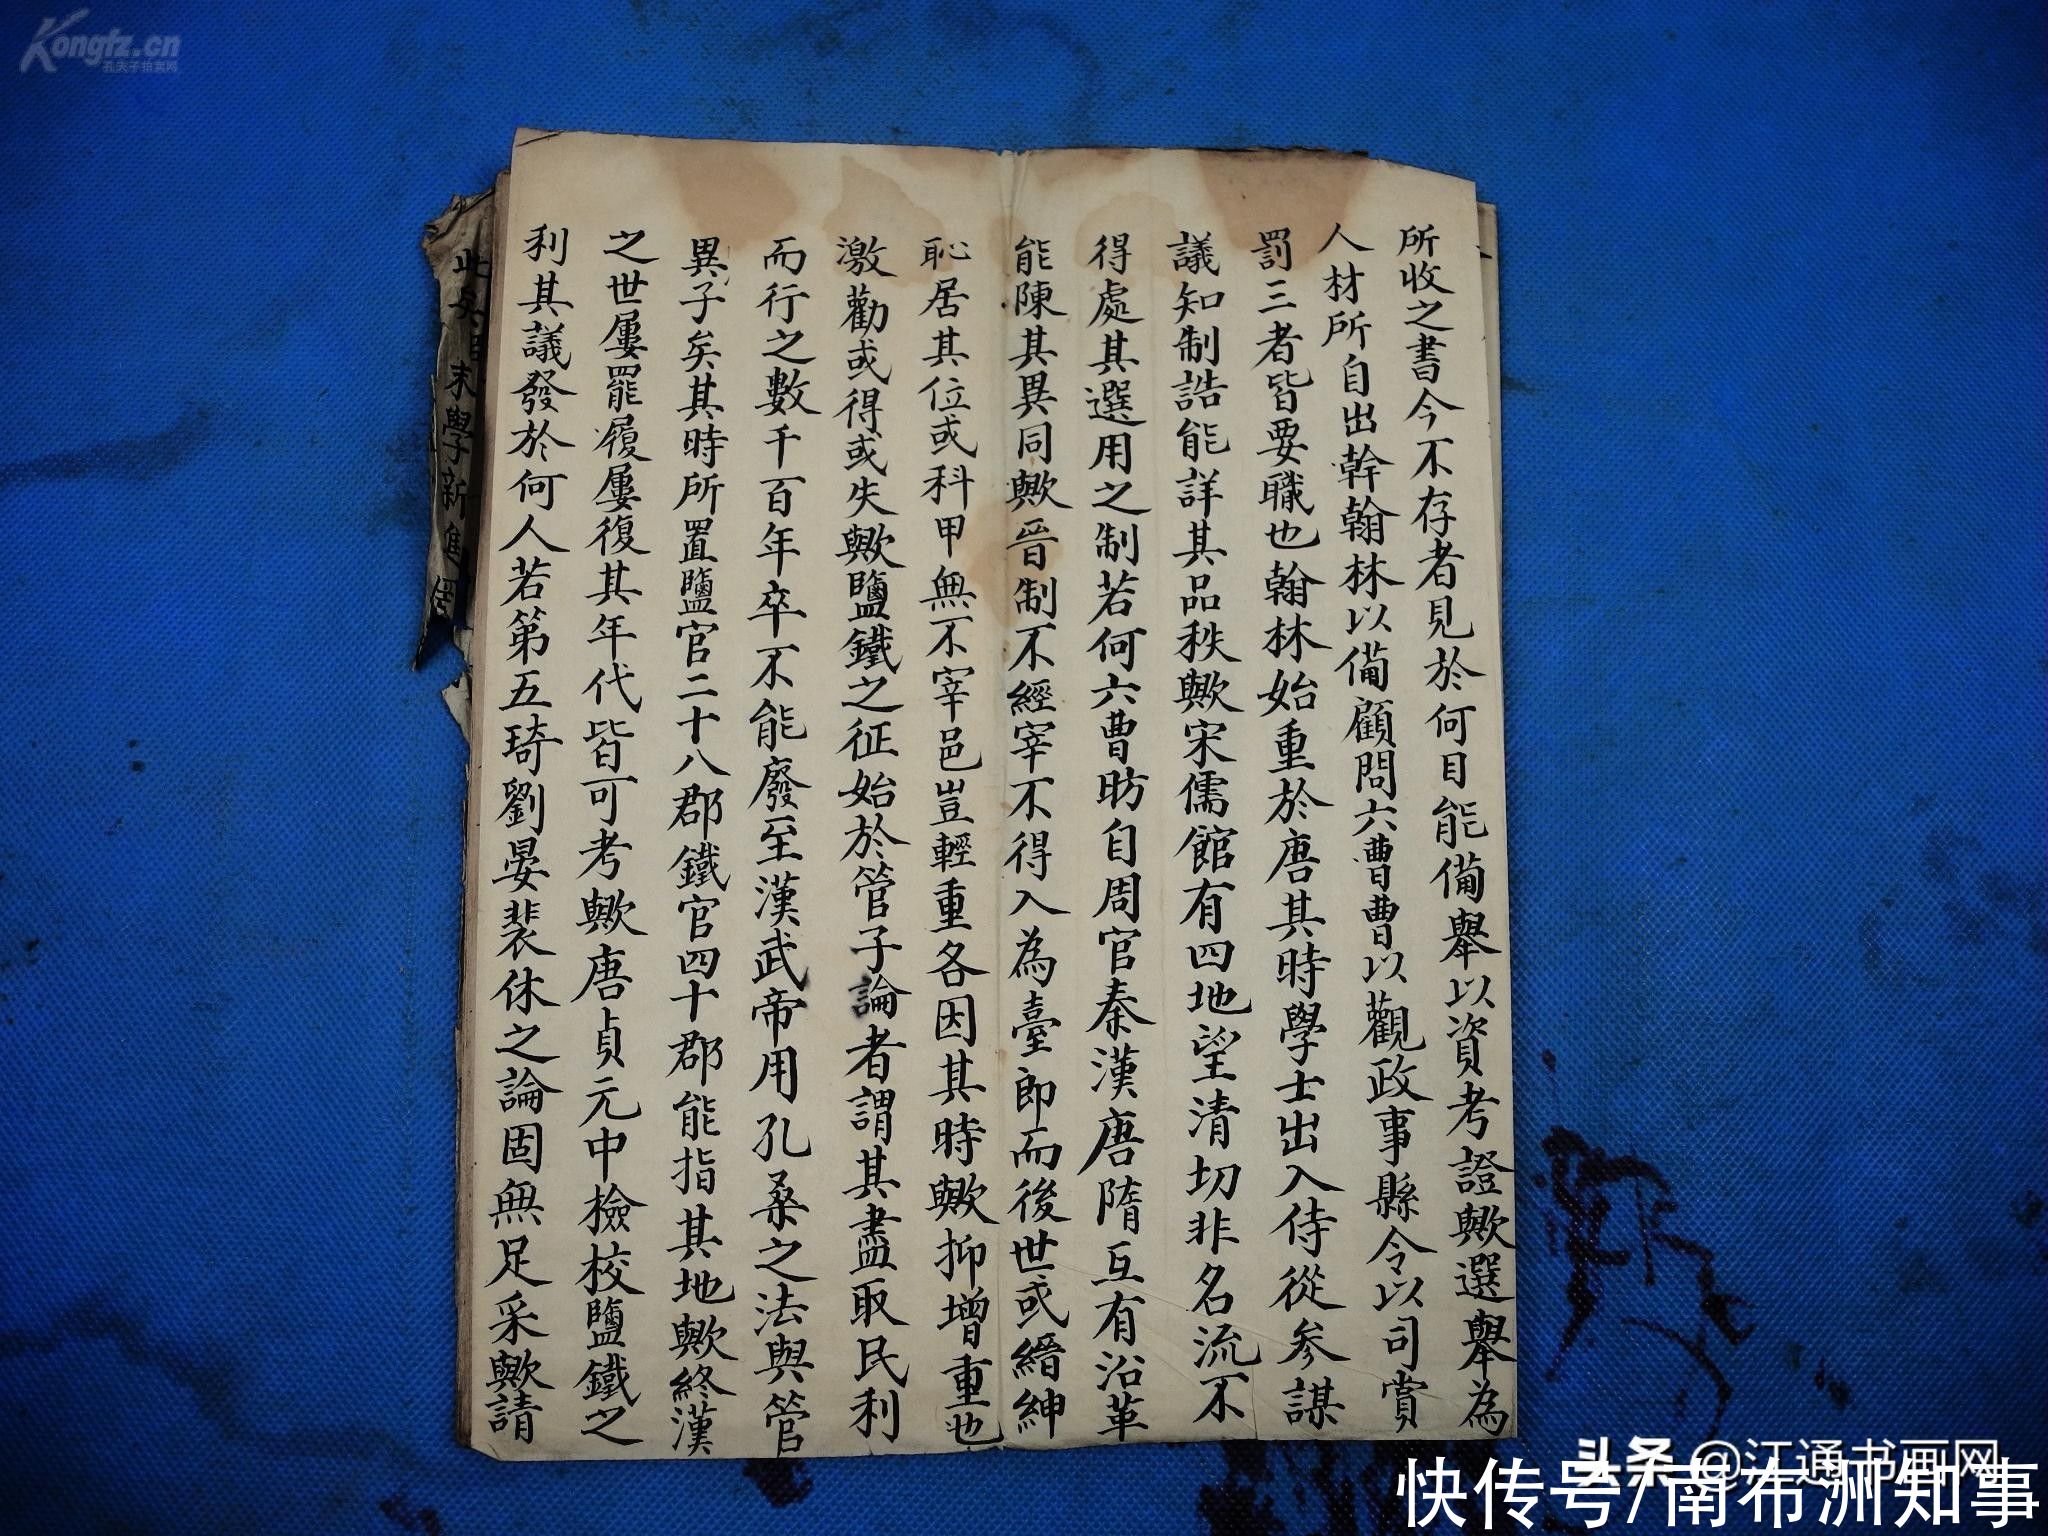 所收之書今不存者見於何目能備舉以資考證歟選舉為
人材所自出幹翰林以備顧問六曹曹以觀政事縣令以司賞
罰三者皆要職也翰林始重於唐其時學士出入侍從參謀
議知制誥能詳其品秩歟宋儒館有四地望清切非名流不
得處其選用之制若何六曹昉自周官秦漢唐隋互有沿革
能陳其異同歟晉制不經宰不得入為臺郎而後世或縉紳
恥居其位或科甲無不宰邑豈輕重各因其時歟抑增重也
激勸或得或失歟鹽鐵之征始於管子論者謂其盡取民利
而行之數千百年卒不能廢至漢武帝用孔桑之法與管
異子矣其時所置鹽官二十八郡鐵官四十郡能指其地歟終漢
之世屢罷履屢復其年代皆可考歟唐貞元中檢校鹽鐵之
利其議發於何人若第五琦劉晏裴休之論固無足采歟請
此 末學新進
Kongfz.cn
孔夫子拍卖网
头条 @江通书画网
快传号/南布洲知事